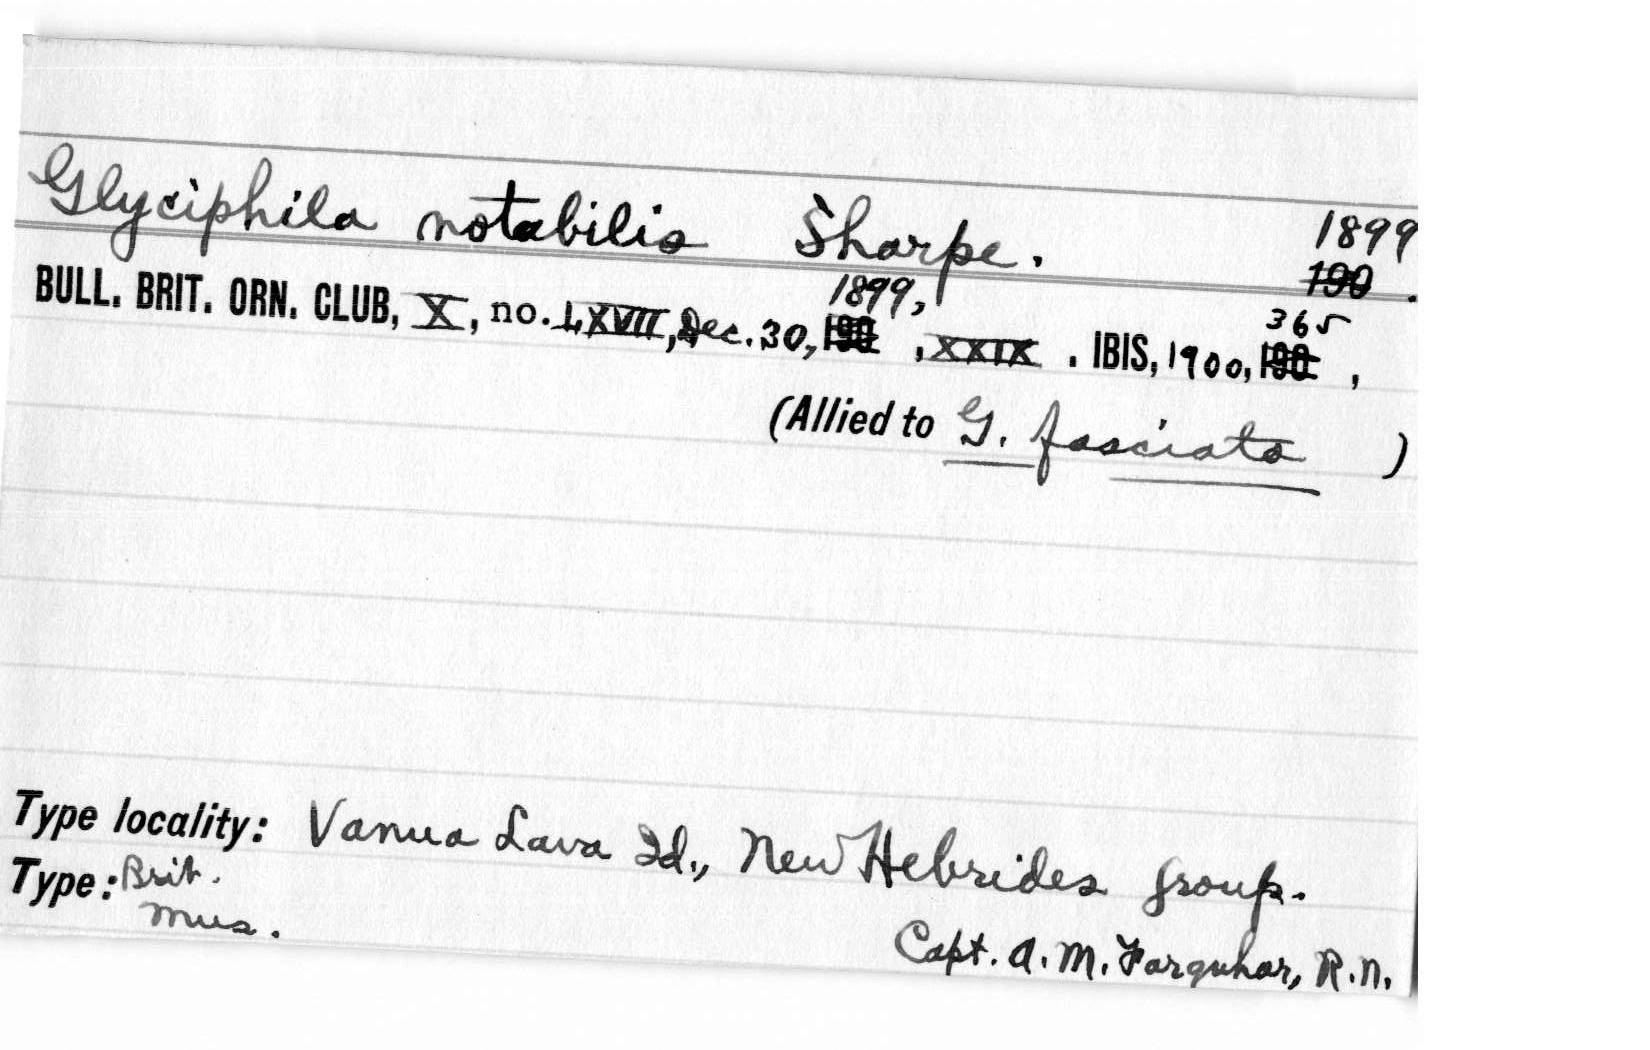 Glyciphila notabilis Sharpe. 1899
190 .
1899,
BULL. BRIT. ORN. CLUB, X, no. LXVII, Dec. 30, 190 , XXIX . IBIS, 1900, 190 ,
365
(Allied to G. fasciata )
Type locality: Vanua Lava Id., New Hebrides group.
Type: Brit.
Mus.
Capt. A. M. Farquhar, R.N.